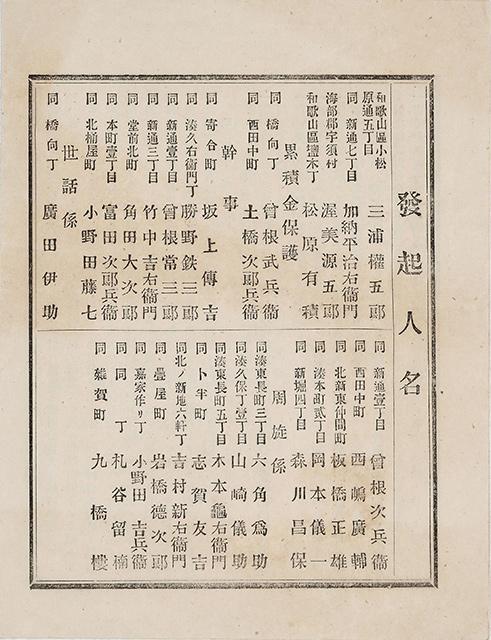 發起人名
和歌山區小松原通五丁目 三浦權五郎
同 新通七丁目 加納平治右衞門
海部郡宇須村 渥美源五郎
和歌山區鹽木丁 松原有積
累積金保護
同 橋向丁 曾根武兵衞
同 西田中町 土橋次郎兵衞
幹事
同 寄合町 坂上傳吉
同 湊久右衞門丁 勝野鉄三郎
同 新通壹丁目 曾根常三郎
同 新通三丁目 竹中吉右衞門
同 堂前北町 角田大次郎
同 本町壹丁目 富田次郎兵衞
同 北桶屋町 小野田藤七
世話係
同 橋向丁 廣田伊助
同 新通壹丁目 曾根次兵衞
同 西田中町 西嶋廣輔
同 北新東仲間町 板橋正雄
同 湊本町貳丁目 岡本儀一
同 新堀四丁目 森川昌保
周旋係
同 湊東長町三丁目 六角爲助
同 湊久保丁壹丁目 山崎儀助
同 湊東長町五丁目 木本龜右衞門
同 卜半町 志賀友吉
同 北ノ新地六軒丁 吉村新右衞門
同 疊屋町 岩橋德次郎
同 嘉家作リ丁 小野田吉兵衞
同 同丁 札谷留楠
同 雜賀町 九橋樓